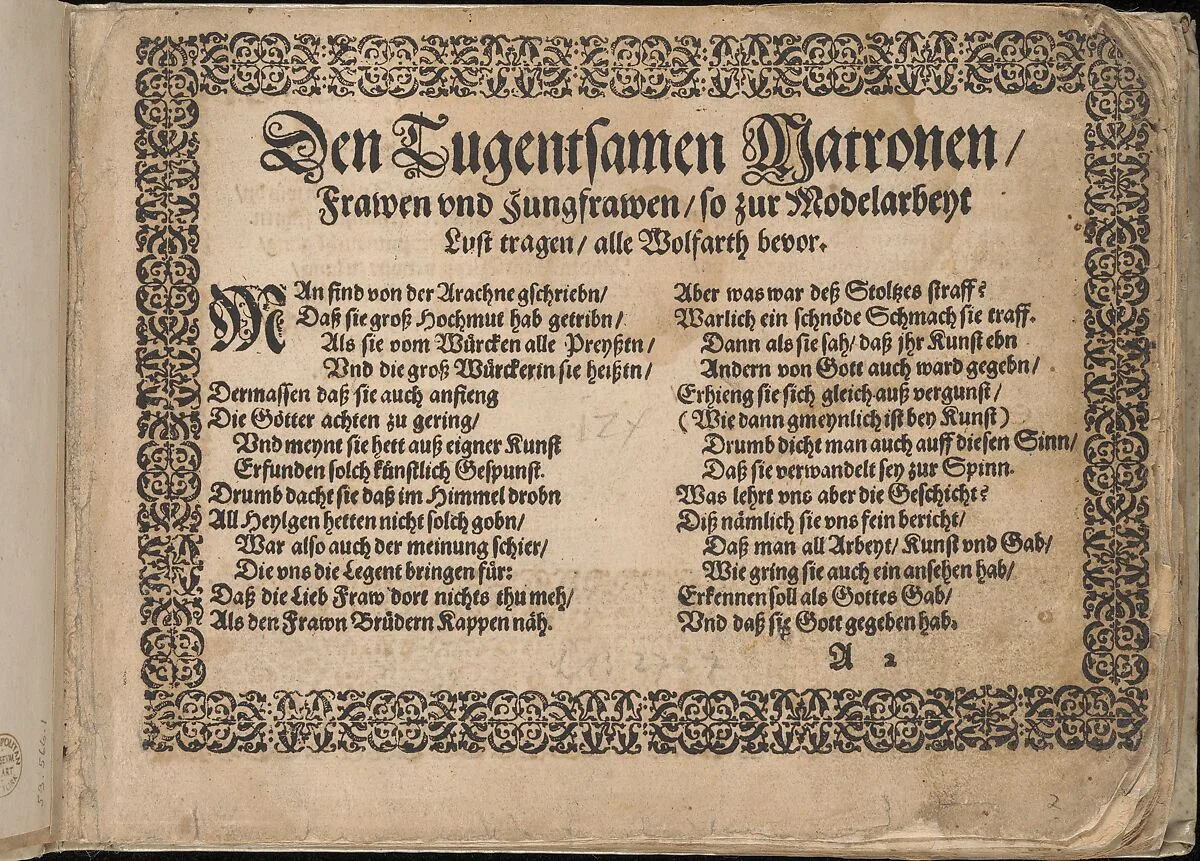 Den Tugentsamen Matronen/
Frawen vnd Jungfrawen/ so zur Modelarbeyt
Lust tragen/ alle Wolfarth bevor.
MAn find von der Arachne gschriebn/
Daß sie groß Hochmut hab getribn/
Als sie vom Würcken alle Preyßtn/
Vnd die groß Würckerin sie heißtn/
Dermassen daß sie auch anfieng
Die Götter achten zu gering/
Vnd meynt sie hett auß eigner Kunst
Erfunden solch künstlich Gespunst.
Drumb dacht sie daß im Himmel drobn
All Heylgen hetten nicht solch gobn/
War also auch der meinung schier/
Die vns die Legent bringen für:
Daß die Lieb Fraw dort nichts thu meh/
Als den Frawn Brüdern Kappen näh.
Aber was war deß Stoltzes straff?
Warlich ein schnöde Schmach sie traff.
Dann als sie sah/ daß jhr Kunst ebn
Andern von Gott auch ward gegebn/
Erhieng sie sich gleich auß vergunst/
(Wie dann gmeynlich ist bey Kunst)
Drumb dicht man auch auff diesen Sinn/
Daß sie verwandelt sey zur Spinn.
Was lehrt vns aber die Geschicht?
Diß nämlich sie vns fein bericht/
Daß man all Arbeyt/ Kunst vnd Gab/
Wie gring sie auch ein ansehen hab/
Erkennen soll als Gottes Gab/
Vnd daß sie Gott gegeben hab.
A 2
2